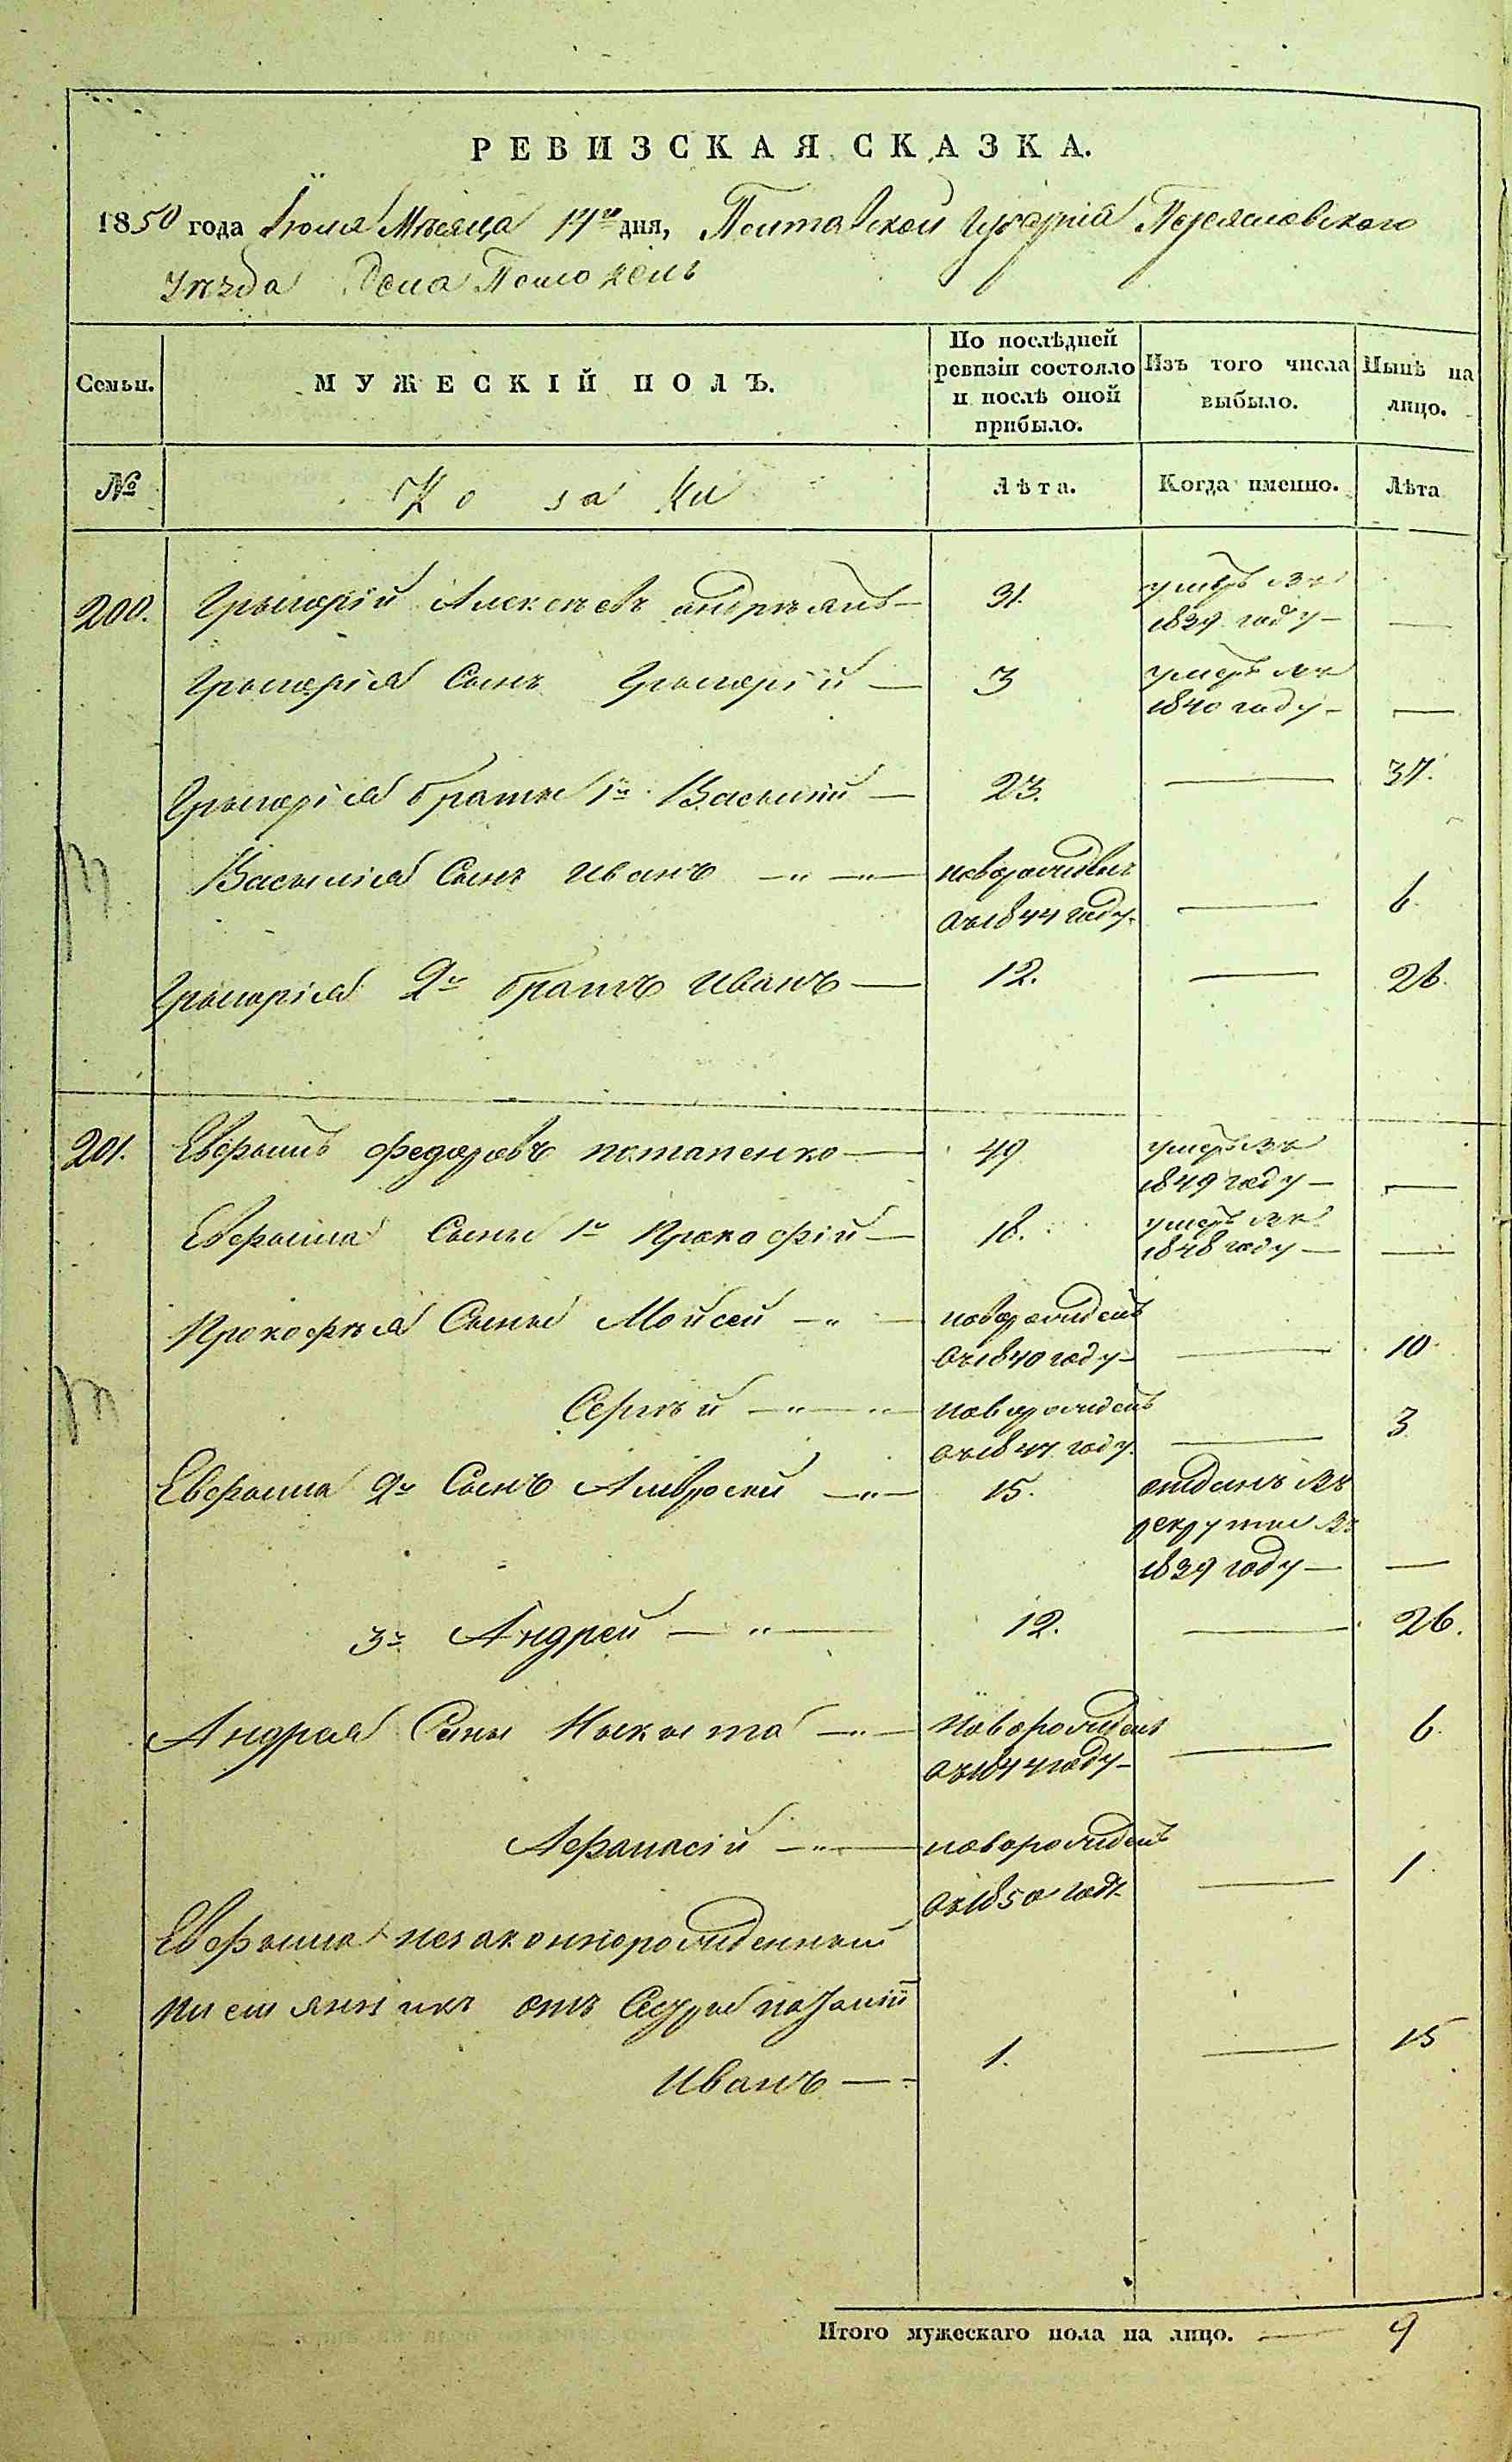 РЕВИЗСКАЯ СКАЗКА.
1850 года Іюля Мѣсяца дня, Полтавской Губерніи Переяславского
Уѣзда Села Помоклей
Семьи.
МУЖЕСКІЙ ПОЛЪ.
По послѣдней
ревизіи состояло
и послѣ оной
прибыло.
Изъ того числа
выбыло.
Нынѣ на
лицо.
№
Козаки
Лѣта.
Когда именно.
Лѣта
200. Григорій Алексѣевъ 31. умеръ въ
1839 году — —
Григорія Сынъ Григорій — 3 умеръ въ
1840 году — —
Григорія братья 1й Василій — 23. — 37.
Василія Сынъ Иванъ — „ — новорожденъ
въ 1844 году. — 6.
Григорія 2й братъ Иванъ — 12. — 26.
201. Евфимъ Федоровъ потапенко — 49 умеръ въ
1849 году — —
Евфима Сыны 1й Прокофій — 18. умеръ въ
1848 году — —
Прокофѣя Сыны Мойсей — „ — новорожденъ
въ 1840 году — — 10.
Сергѣй — „ — „ новорожденъ
въ 1847 году. — 3
Евфима 2й Сынъ Амвросій — „ — 15. отданъ въ
рекруты въ
1839 году — —
3й Андрей — „ — 12. — 26.
Андрея Сыны Никита — „ — Новорожденъ
въ 1844 году — — 6.
Афанасій — „ — новорожденъ
въ 1850 году — — 1.
Евфима незаконнорожденный
племянникъ отъ Сестры
Иванъ — 1. — 15
Итого мужескаго пола на лицо. — 9